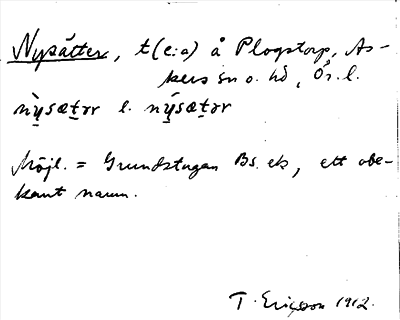 Nysätter, t(e:a) å Plogstorp, As-
kers sn o. hd, Ör. l.
nỳsætǝr l. nýsætǝr
Möjl. = Grundstugan Bs. ek, ett obe-
kant namn.
T. Ericsson 1912.